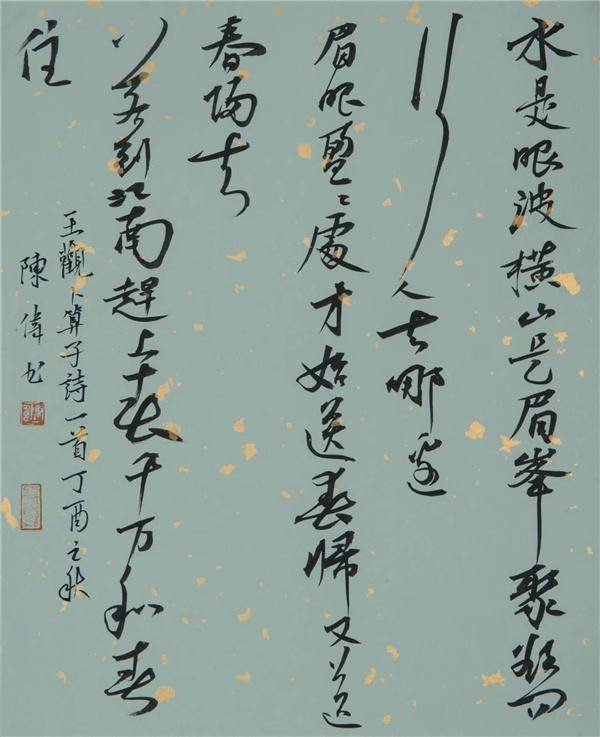 水是眼波橫山是眉峯聚欲問
行人去哪邊
眉眼盈〻處才始送春歸又送
春歸去
若到江南趕上春千万和春
住
王觀卜算子詩一首丁酉之秋
陳偉书